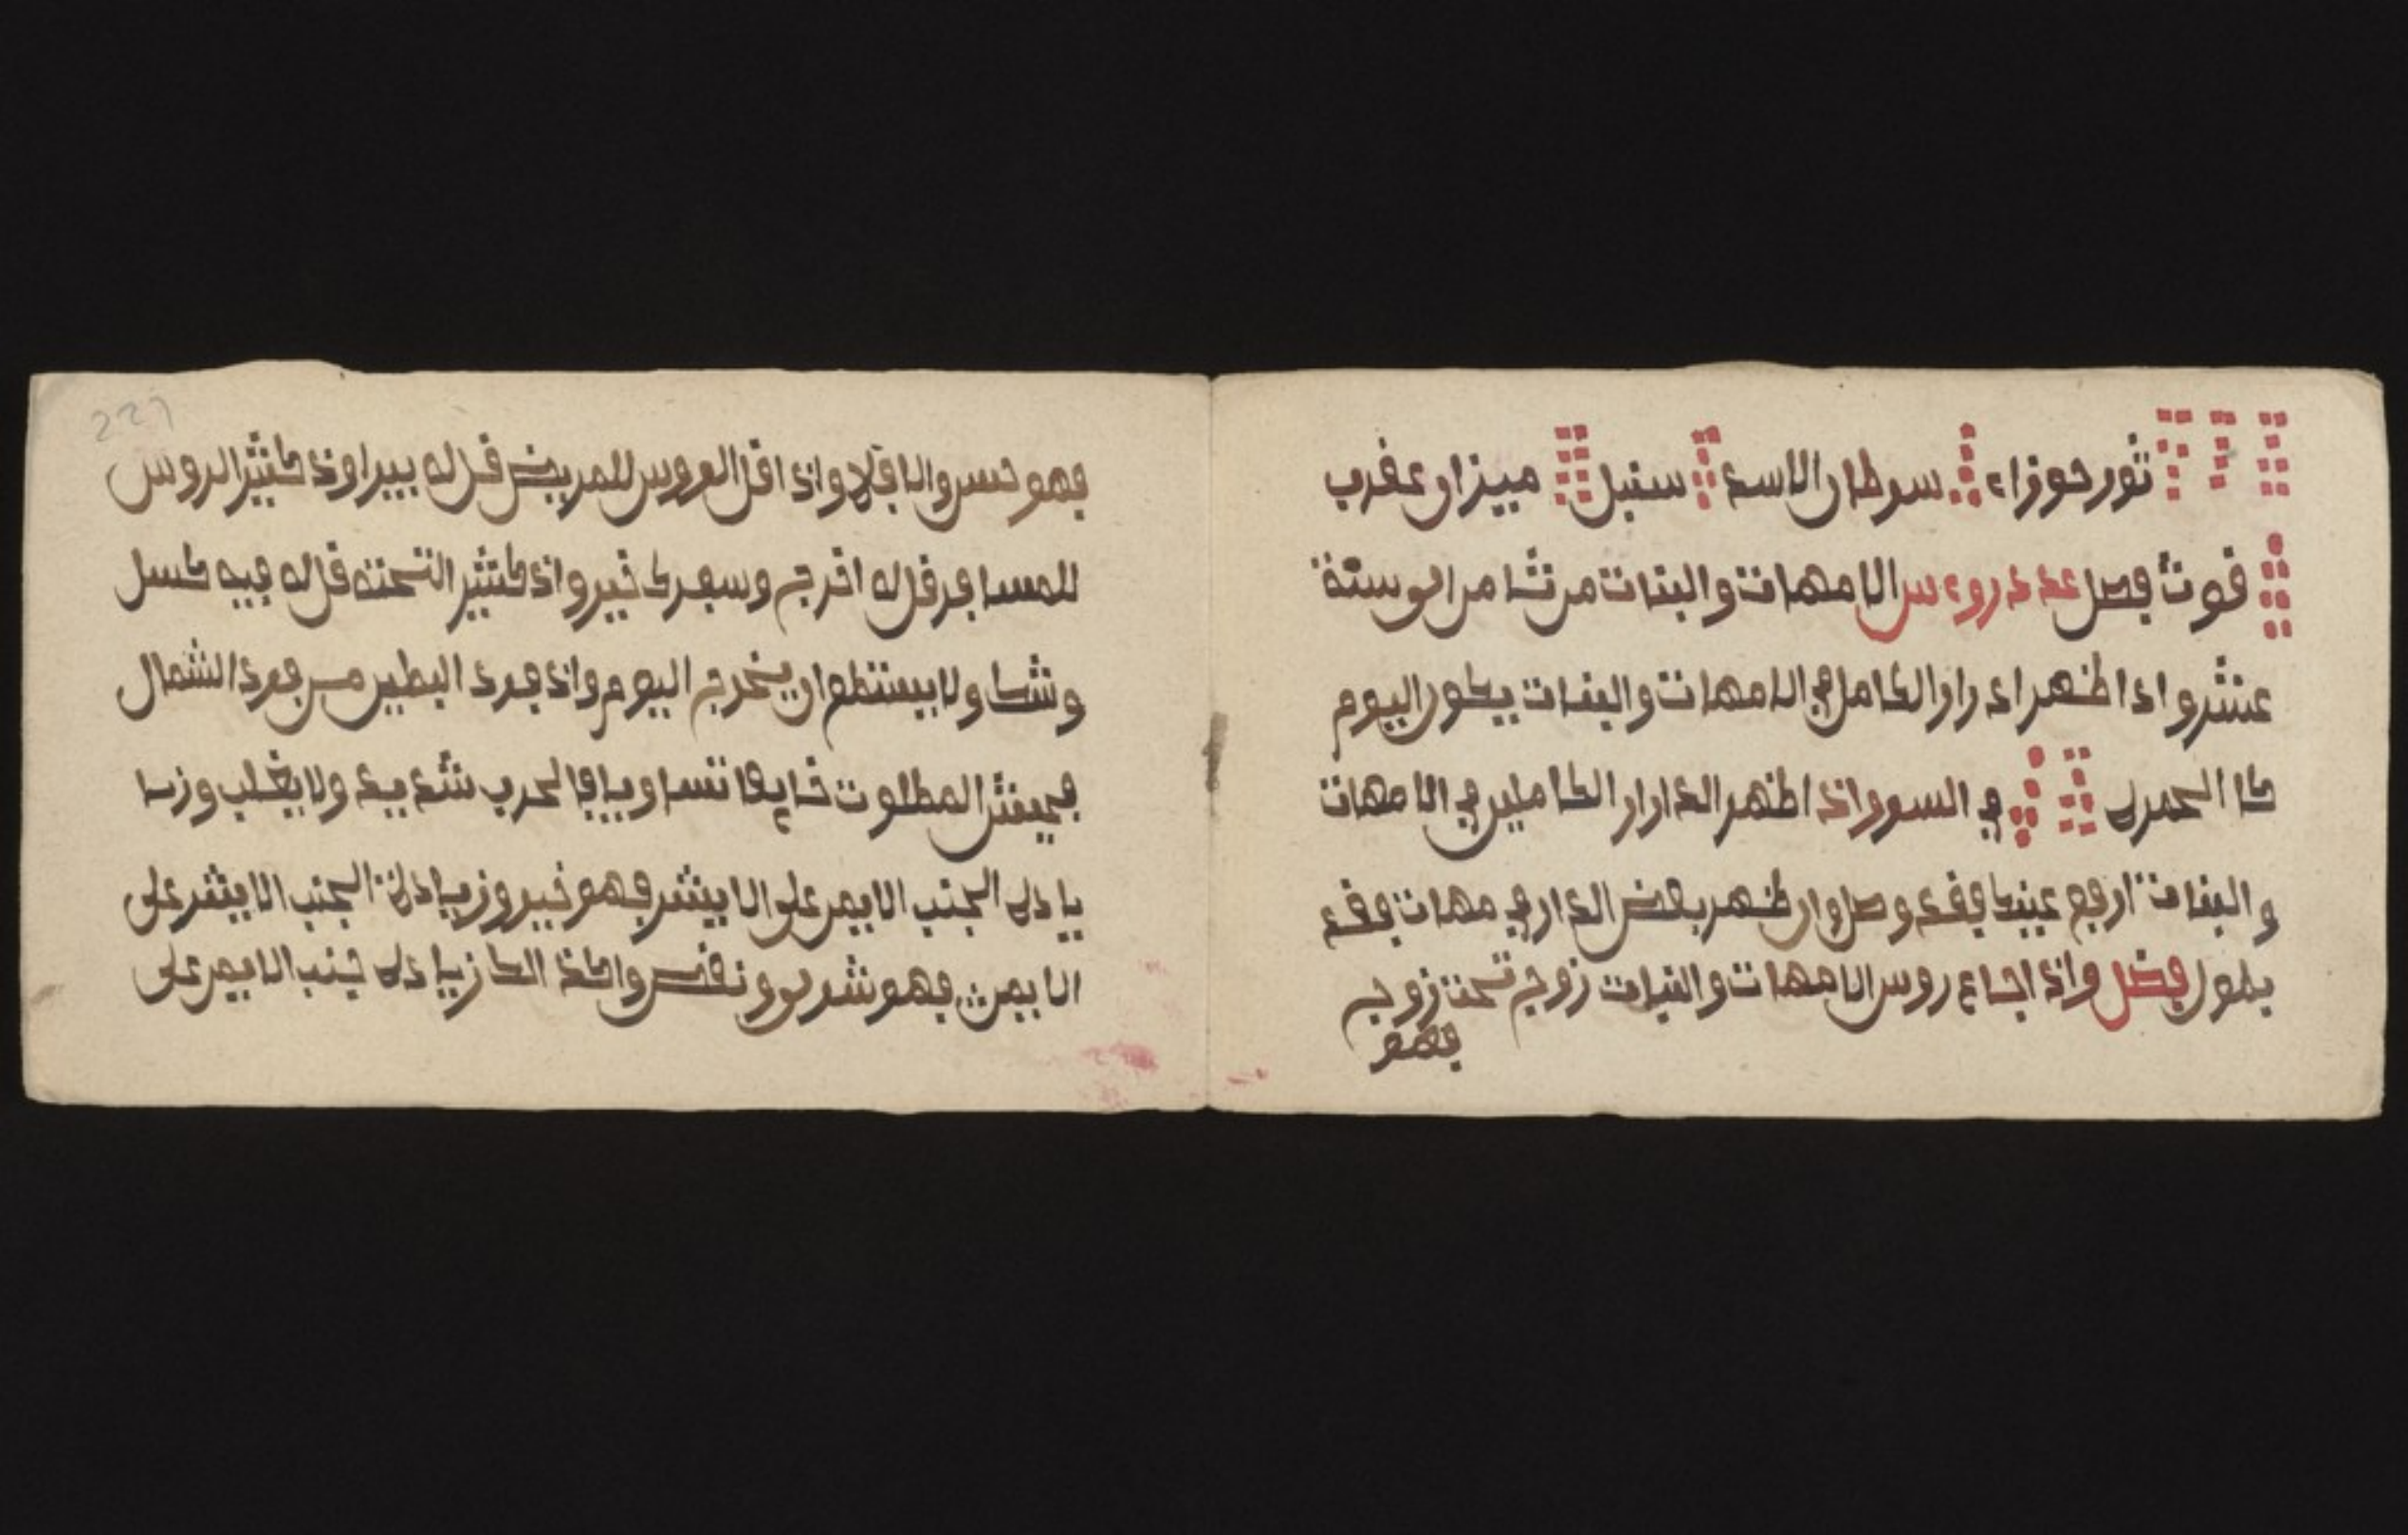 ثور جوزاء سرطان الاسد سنبل ميزان عقرب
قوث فصل عدد روءس الامهات والبنات من ثمنا من الى ستة
عشر واذا ظهر اد رار الكامل في الامهات والبنات يكون اليوم
كا الحمرة في السور واذ اظهر الد ارار الكاملين في الامهات
والبنات ارفع عينك فقد وصل وان ظهر بعض الدار في مهات فقد
يطول فصل واذ اجاع روس الامهات والبنات زوج تحت زوج
فهو
فهو حسن والا فلا واذ اقل الروس للمريض قل له يبرا وذ كثير الروس
للمسافر قل له اخرج وسفرك خير واذ كثير التحته قل له فيه كسل
وشك ولا يستطع ان يخرج اليوم واذ فرد البطين من فرد الشمال
المطلوت الحرب شديد ولا يغلب وزيا
يادة الجنب الايمن على الايشر فهو خير وزيادة الجنب الايشر على
الايمن فهو شر ونقص زيادة جنب الايمن على
227